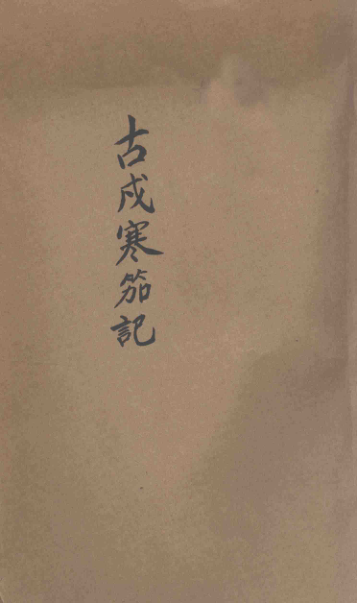 古戍寒笳記